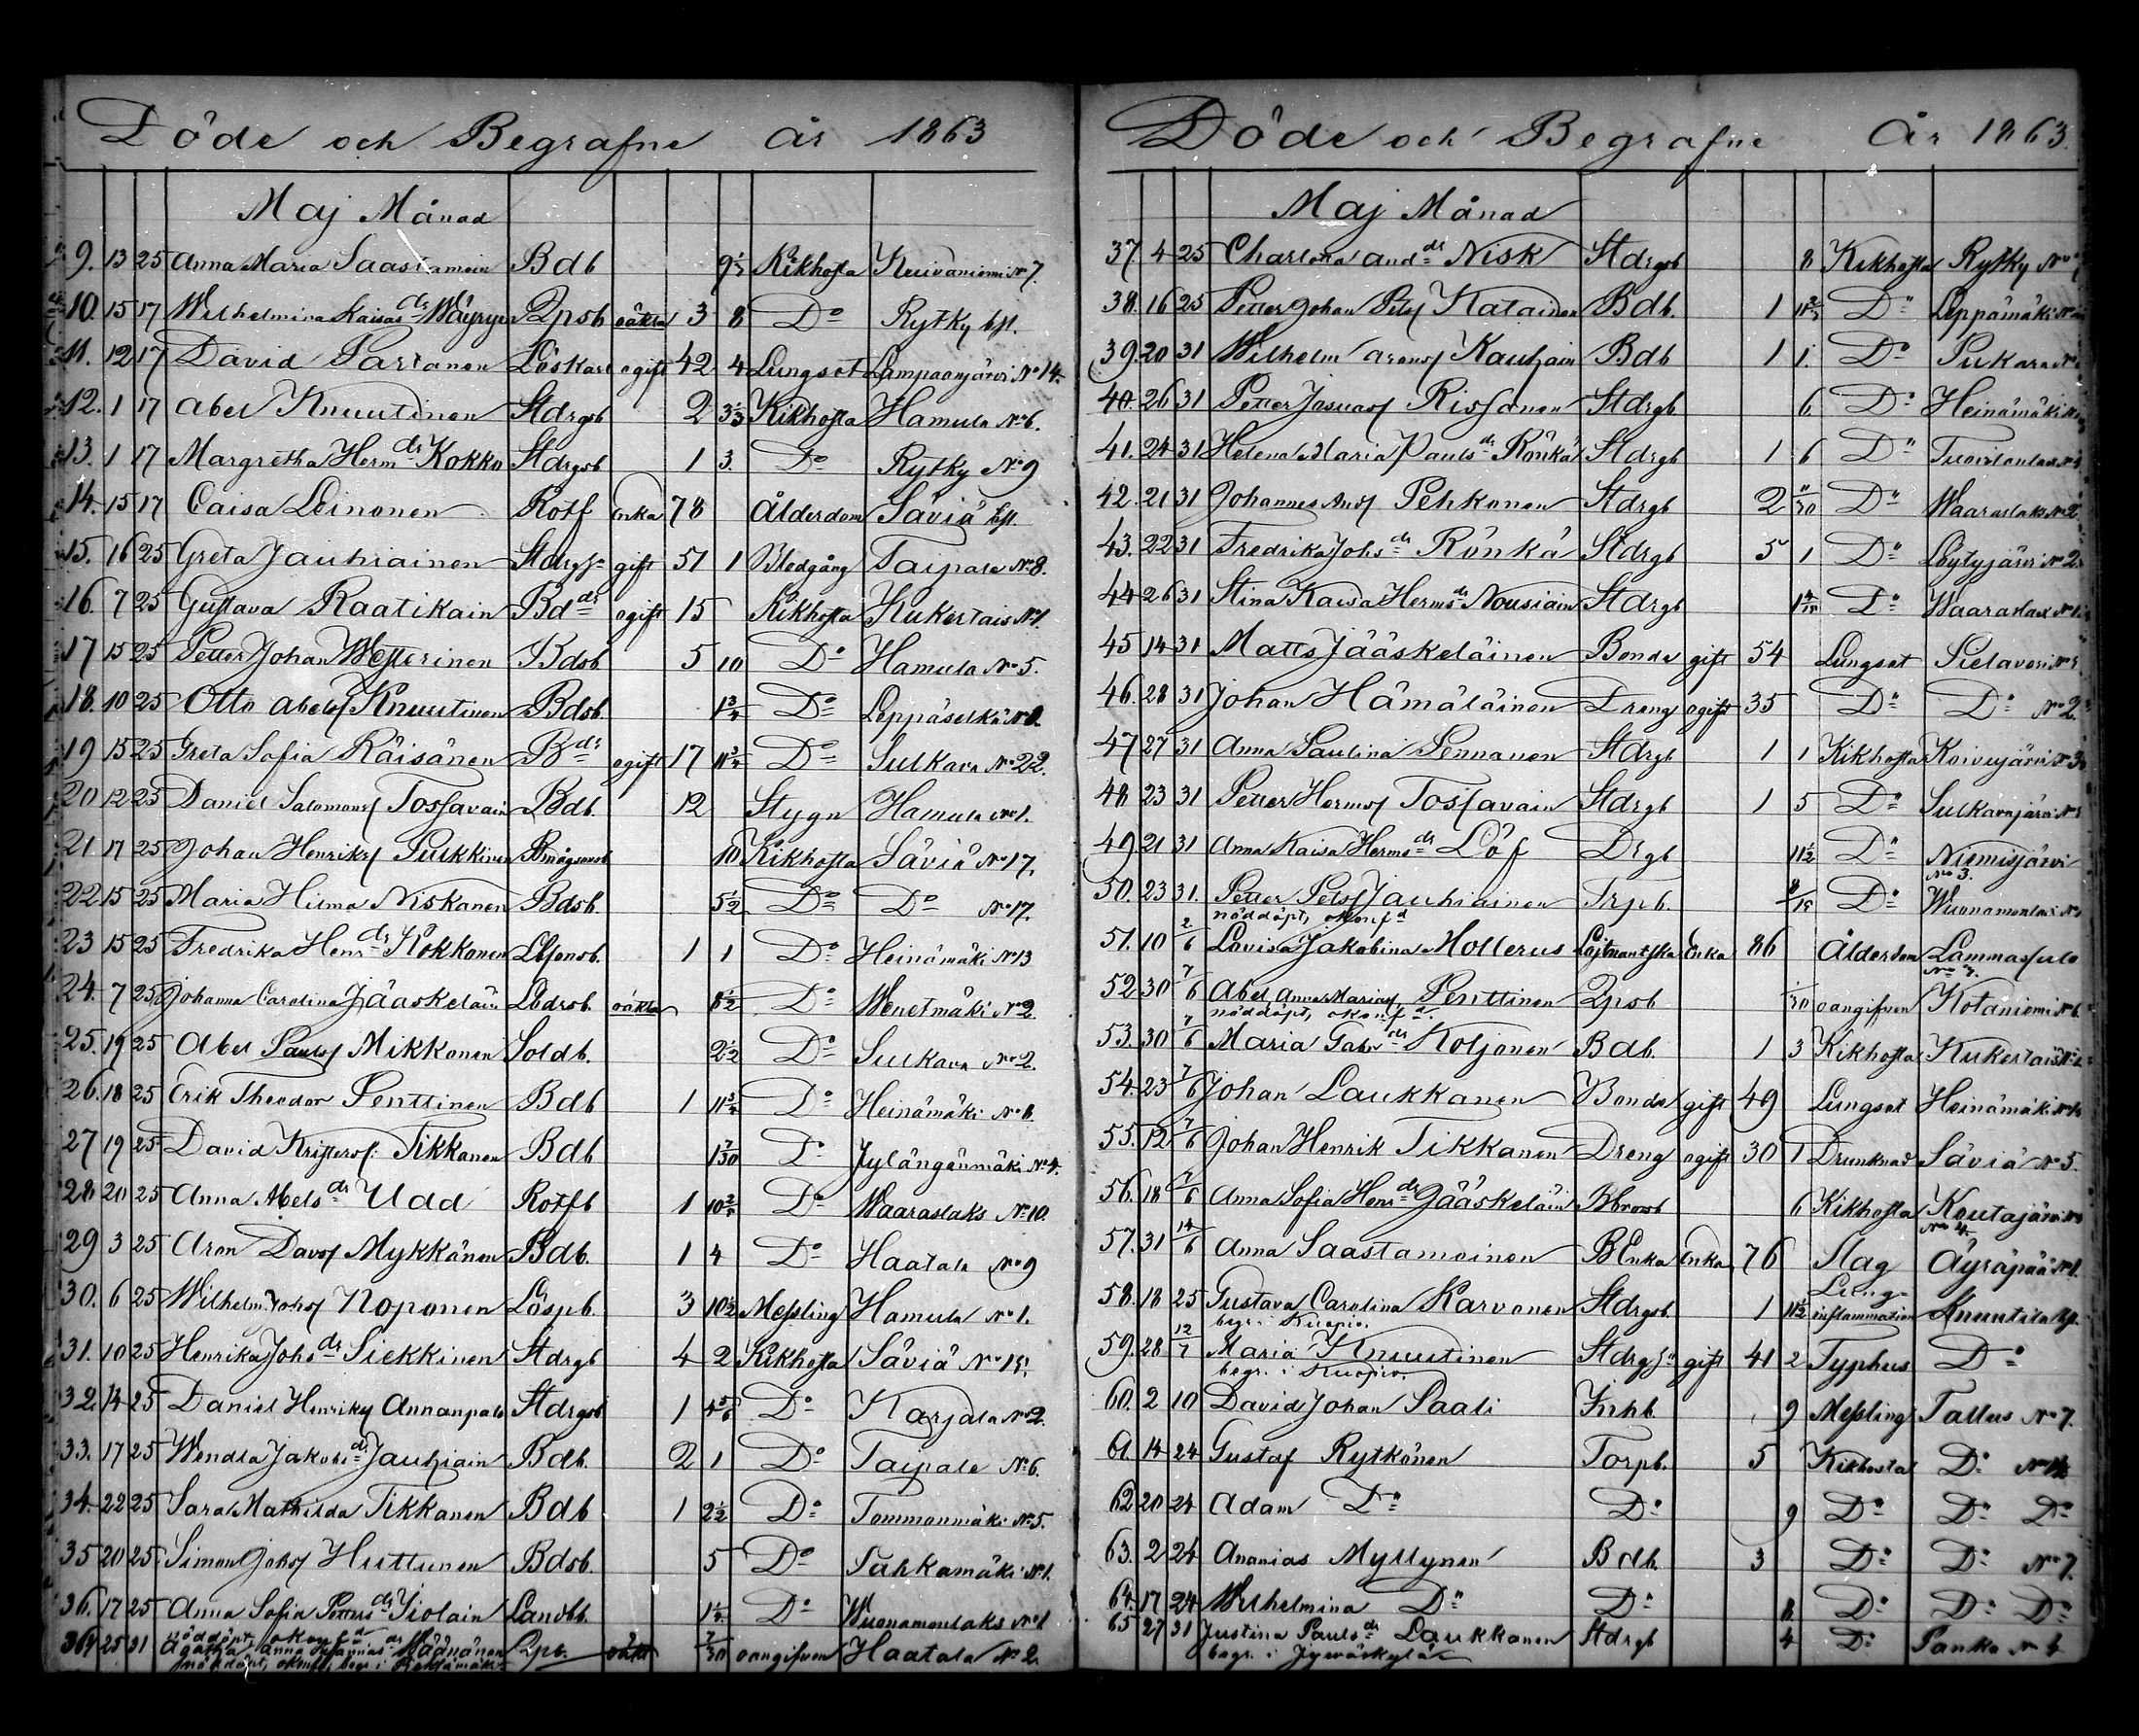 Döde och Begrafne år 1863
Maj Månad
9. 13 25 Anna Maria Saastamoin Bdb 9 1/3 Kikhosta Kuivaniemi No 7.
10. 15 17 Wilhelmina Kaisas dr Wäyryn Qpsb oäkta 3 8 Do Rytky
11. 12 17 David Partanen Löskarl ogift 42 4 Lungsot Lampaanjärvi No 14.
12. 1 17 Abel Knuutinen Stdrgsb 2 3 1/3 Kikhosta Hamula No 6.
13. 1 17 Margretha Herm dr Kokko Stdrgsb 1 3. Do Rytky No 9
14. 15 17 Caisa Leinonen Rotf Enka 78 Ålderdom Säviä
15. 16 25 Greta Jauhiainen gift 51 1 Blodgång Taipale No 8.
16. 7 25 Gustava Raatikain Bd dr ogift 15 Kikhosta Kukertais No 1.
17 15 25 Petter Johan Westerinen Bdsb 5 10 Do Hamula No 5.
18. 10 25 Otto Abelsf Knuutinen Bdsb. 1 3/4 Do Leppäselkä
19 15 25 Greta Sofia Räisänen B dr ogift 17 11 3/4 Do Sulkava No 22.
20 12 25 Daniel Salomonsf Tossavain Bdb. 12 Stygn Hamula No 1.
21. 17 25 Johan Henriksf Pukkinen 10 Kikhosta Säviä No 17.
22 15 25 Maria Hilma Niskanen Bdsb. 5 1/2 Do Do No 17.
23 15 25 Fredrika Henr dr Kokkonen 1 1 Do Heinämäki No 13
24. 7 25 Johanna Carolina Jääskeläin oäkta 8 1/2 Do Wenetmäki No 2.
25. 19 25 Abel Paulsf Mikkonen Soldb. 2 1/2 Do Sulkava No 2.
26. 18 25 Erik Theodor Penttinen Bdb 1 11 3/4 Do Heinämäki No 8.
27 19 25 David Kristersf. Tikkanen Bdb 1 7/30 Do Jylängänmäki No 4.
28 20 25 Anna Abels dr Udd Rotfb 1 Do Waaraslaks No 10.
29 3 25 Aron Davsf Mykkänen Bdb. 1 4 Do Haatala No 9
30. 6 25 Wilhelm Johsf Noponen Löspb. 3 10 1/2 Messling Hamula No 1.
31. 10 25 Henrika Johs dr Siekkinen Stdrgb 4 2 Kikhosta Säviä No 15.
32. 14 25 Daniel Henriksf Annanpalo Stdrgsb 1 4 5/6 Do Karjala No 2.
33. 17 25 Wendla Jakobs dr Jauhiain Bdb. 2 1 Do Taipale No 6.
34. 22 25 Sara Mathilda Tikkanen Bdb 1 2 1/2 Do Tommonmäki No 5.
35 20 25 Simon Johsf Huttunen Bdsb. 5 Do Sahkamäki No 1.
36. 17 25 Anna Sofia Petters dr Landbb. Do Wuonamonlaks No 1
nöddöpt, okonf d
25 31 Agatha Anna Johannas dr Väänänen Qpb. oäkt 7/30 oangifven Haatala No 2.
Döde och Begrafne År 1863.
Maj Månad
37 4 25 Charlotta And dr Nisk Stdrgsb 8 Kikhosta Rytky
38. 16 25 Petter Johan Petsf Katainen Bdb. 1 Do Leppämäki
39. 20 31 Wilhelm Aronsf Kauhain Bdb 1 1. Do Sukara
40. 26 31 Petter Josuasf Rissanen Stdrgb. 6 Do Heinämäki
41. 24 31 Helena Maria Pauls dr Rönkä Stdrgb 1 6 Do
42. 21 31 Johannes Andsf Pehkonen Stdrgb 2 11/30 Do Waaraslaks No 2
43. 22 31 Fredrika Johs dr Rönkä Stdrgb 5 1 Do Löytyjärvi No 2.
44 26 31 Stina Kaisa Herms dr Nousiain Stdrgb Do Waaraslax No 1.
45 14 31 Matts Jääskeläinen Bonde gift 54 Lungsot Pielavesi
46. 28 31 Johan Hämäläinen Dreng ogift 35 Do Do No 2.
47 27 31 Anna Paulina Pennanen Stdrgb 1 1 Kikhosta Koivujärvi No 3
48 23 31 Petter Hermsf Tossavain Stdrgb 1 5 Do Sulkavajärvi
49. 21 31 Anna Kaisa Herms dr Löf Drgb 11 1/2 Do Niemisjärvi
No 3.
50. 23 31. Petter Petsf Jauhiainen Trpb. 8/15 Do Wuonamonlax
nöddöpt, okonf d
51. 10 2/6 Lovisa Jakobina Mollerus Löjtnantska Enka 86 Ålderdom Lammassalo
52 30 7/6 Abel Anna Mariasf Penttinen Qpsb /30 oangifven Kotaniemi No 6.
nöddöpt, okonf d.
53. 30 7/6 Maria Gabr dr Koljonen Bdb. 1 3 Kikhosta Kukertais
54. 23 7/6 Johan Laukkanen Bonde gift 49 Lungsot Heinämäki
55. 12 7/6 Johan Henrik Tikkanen Dreng ogift 30 1 Drunknad Säviä No 5.
56. 18 7/6 Anna Sofia Henr dr Jääskeläin 6 Kikhosta Koutajärvi
No 4.
57. 31 14/6 Anna Saastamoinen BEnka Enka 76 Slag Äyräpää No 1.
58. 18 25 Gustava Carolina Karvonen Stdrgsb. 1 11 1/2 Lunginflammation Knuutila
begr. i Kuopio.
59. 28 12/7 Maria Knuutinen gift 41 2 Typhus Do
begr. i Kuopio.
60. 2 10 David Johan Saali Inhb. 9 Messling Tallus No 7.
61. 14 24 Gustaf Rytkönen Torpb. 5 Kikhosta Do
62 20 24 Adam Do Do 9 Do Do Do
63. 2 24 Ananias Myllynen Bdb. 3 Do Do No 7.
64. 17 24 Wilhelmina Do Do 8 Do Do Do
65 27 31 Justina Pauls dr Laukkanen Stdrgb 4 Do Panka No 4
begr. i Jyväskylä